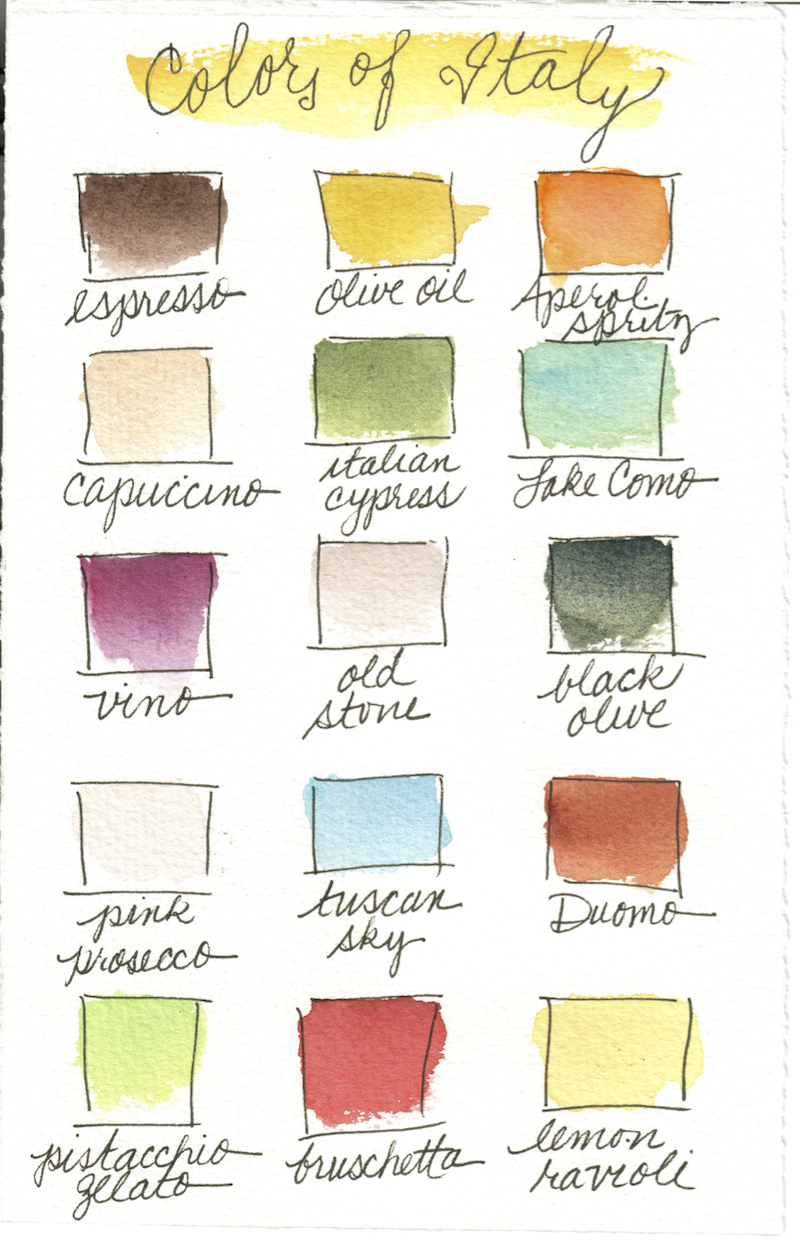 Colors of Italy
espresso
Olive oil
Aperol
spritz
Capuccino
italian
cypress
Lake Como
vino
old
stone
black
olive
pink
prosecco
tuscan
sky
Duomo
pistacchio
gelato
bruschetta
lemon
ravioli